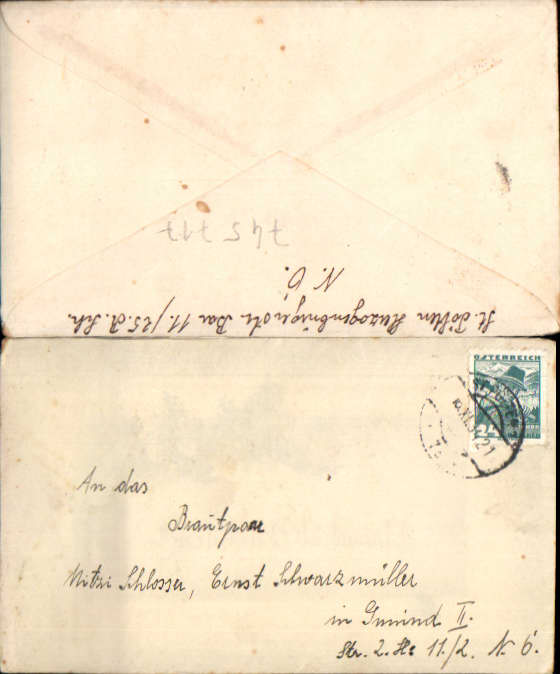 745 717
N. Ö.
St. Pölten Herzogenburgerstr. Bar 11./25. A. Sch.
ÖSTERREICH
An das
Brautpaar
Mitzi Schlosser, Ernst Schwarzmüller
in Gmünd II.
Str. 2. Hs 11./2. N. Ö.